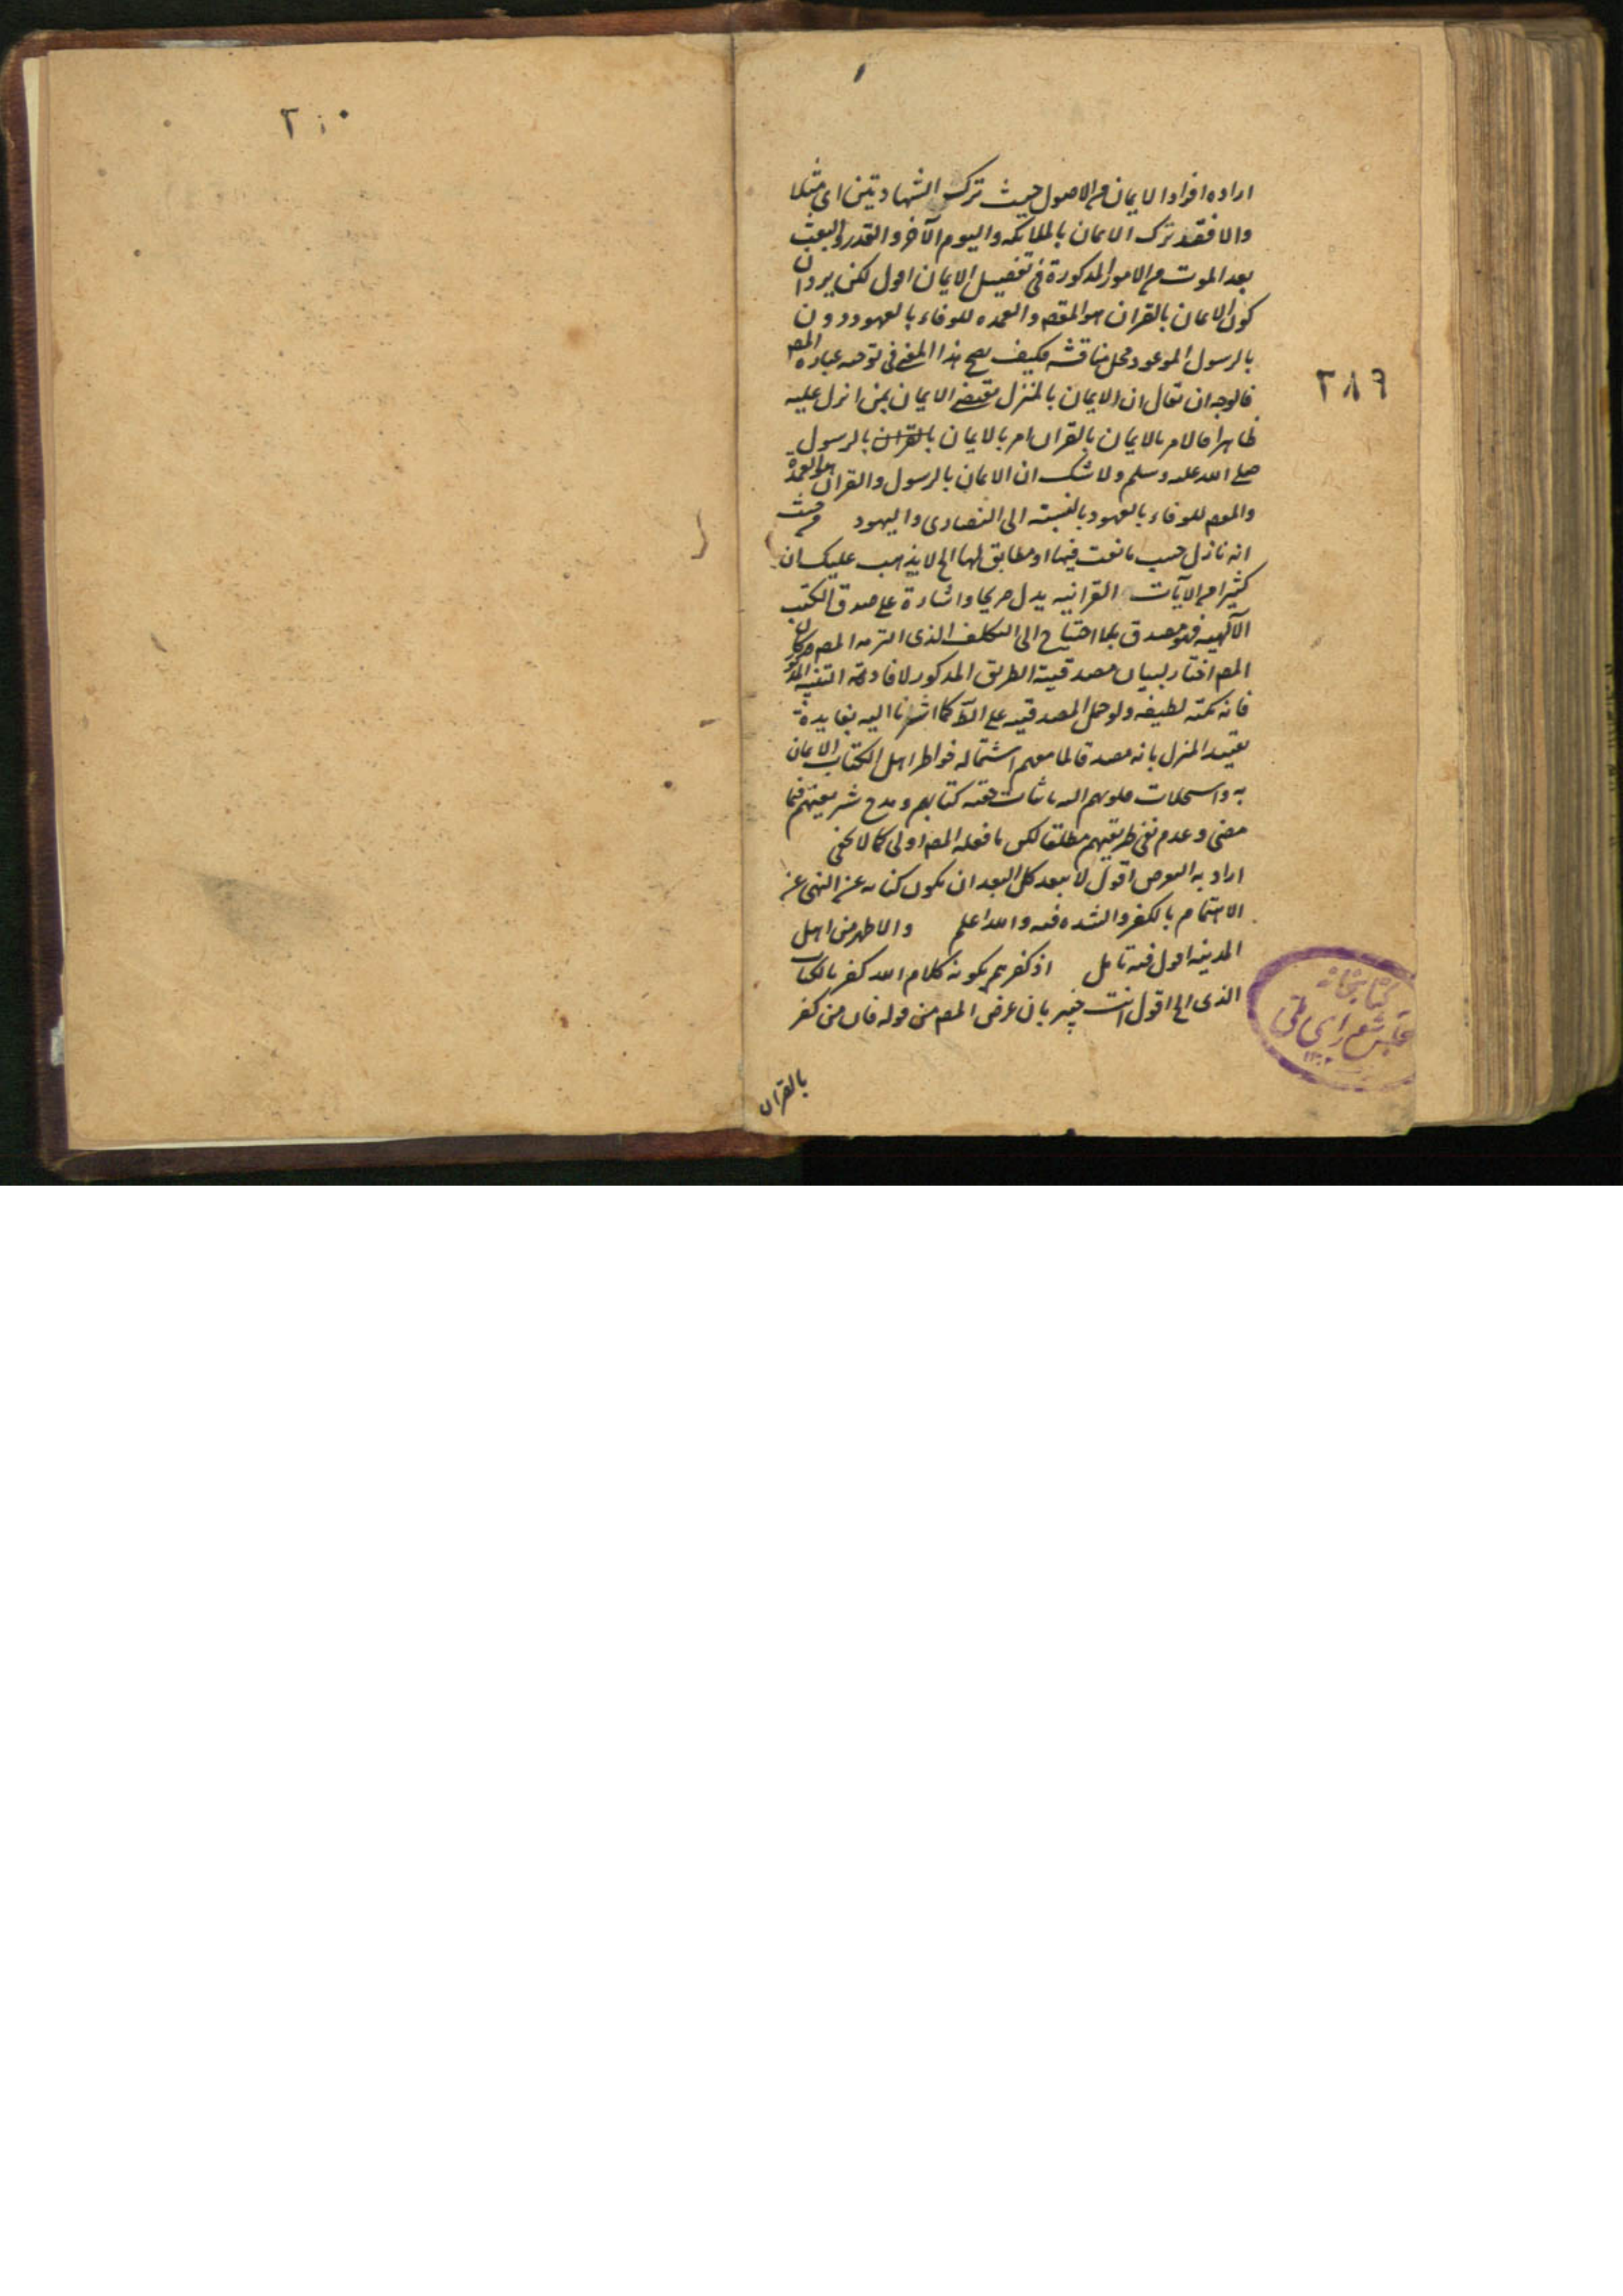 ٢٠٠
٢٨٩
اراده افراد الايمان من الاصول حيث ترك الشهادتين اى مثلا
والا فقد ترك الايمان بالملائكه واليوم الآخر والقدر والبعث
بعد الموت من الامور المذكورة فى تفصيل الايمان اقول لكن يرد ان
كون الايمان بالقران هو المقصـ والعمده للوفاء بالعهود دون
بالرسول الموعود محل مناقشه فكيف يصح هذا المعنى فى توجيه عباره المصـ
فالوجه ان يقال ان الايمان بالمنزل يقتضى الايمان بمن انزل عليه
ظاهرا فالامر بالايمان بالقران امر بالايمان بالقران بالرسول
صلى الله عليه وسلم ولا شك ان الايمان بالرسول والقران هو العمدة
والمقصـ للوفاء بالعهود بالنسبة الى النصارى واليهود من حيث
انه نازل حسب ما نعت فيها او مطابق لها الخ لا يذهب عليك ان
كثيرا من الآيات القرانيه يدل صريحا واشارة على صدق الكتب
الآلهيه فهو مصدق بلا احتياج الى التكلف الذى التزمه المصـ
المصـ اختار لبيان مصدقية الطريق المذكور لافادته التنبيه
فانه نكته لطيفه ولو حمل المصدقيه على الظ كما اشرنا اليه بفايدة
تقييد المنزل بانه مصدقا لما معهم استماله خواطر اهل الكتاب الايمان
به واستجلاب قلوبهم اليه باثبات حقية كتابهم ومدح شريعتهم فيما
مضى وعدم نفى طريقهم مطلقا لكن ما فعله المصـ اولى كما لا يخفى
اراد به التعريض اقول لا يبعد كل البعد ان يكون كنايه عن النهى عن
الاهتمام بالكفر والشده فيه والله اعلم والاظهر من اهل
المدينه اقول فيه تامل اذ كفرهم بكونه كلام الله كفر بالكتاب
الذى الخ اقول انت خبير بان غرض المصـ من قوله فان من كفر
بالقران
كتابخانه
مجلس شوراى ملى